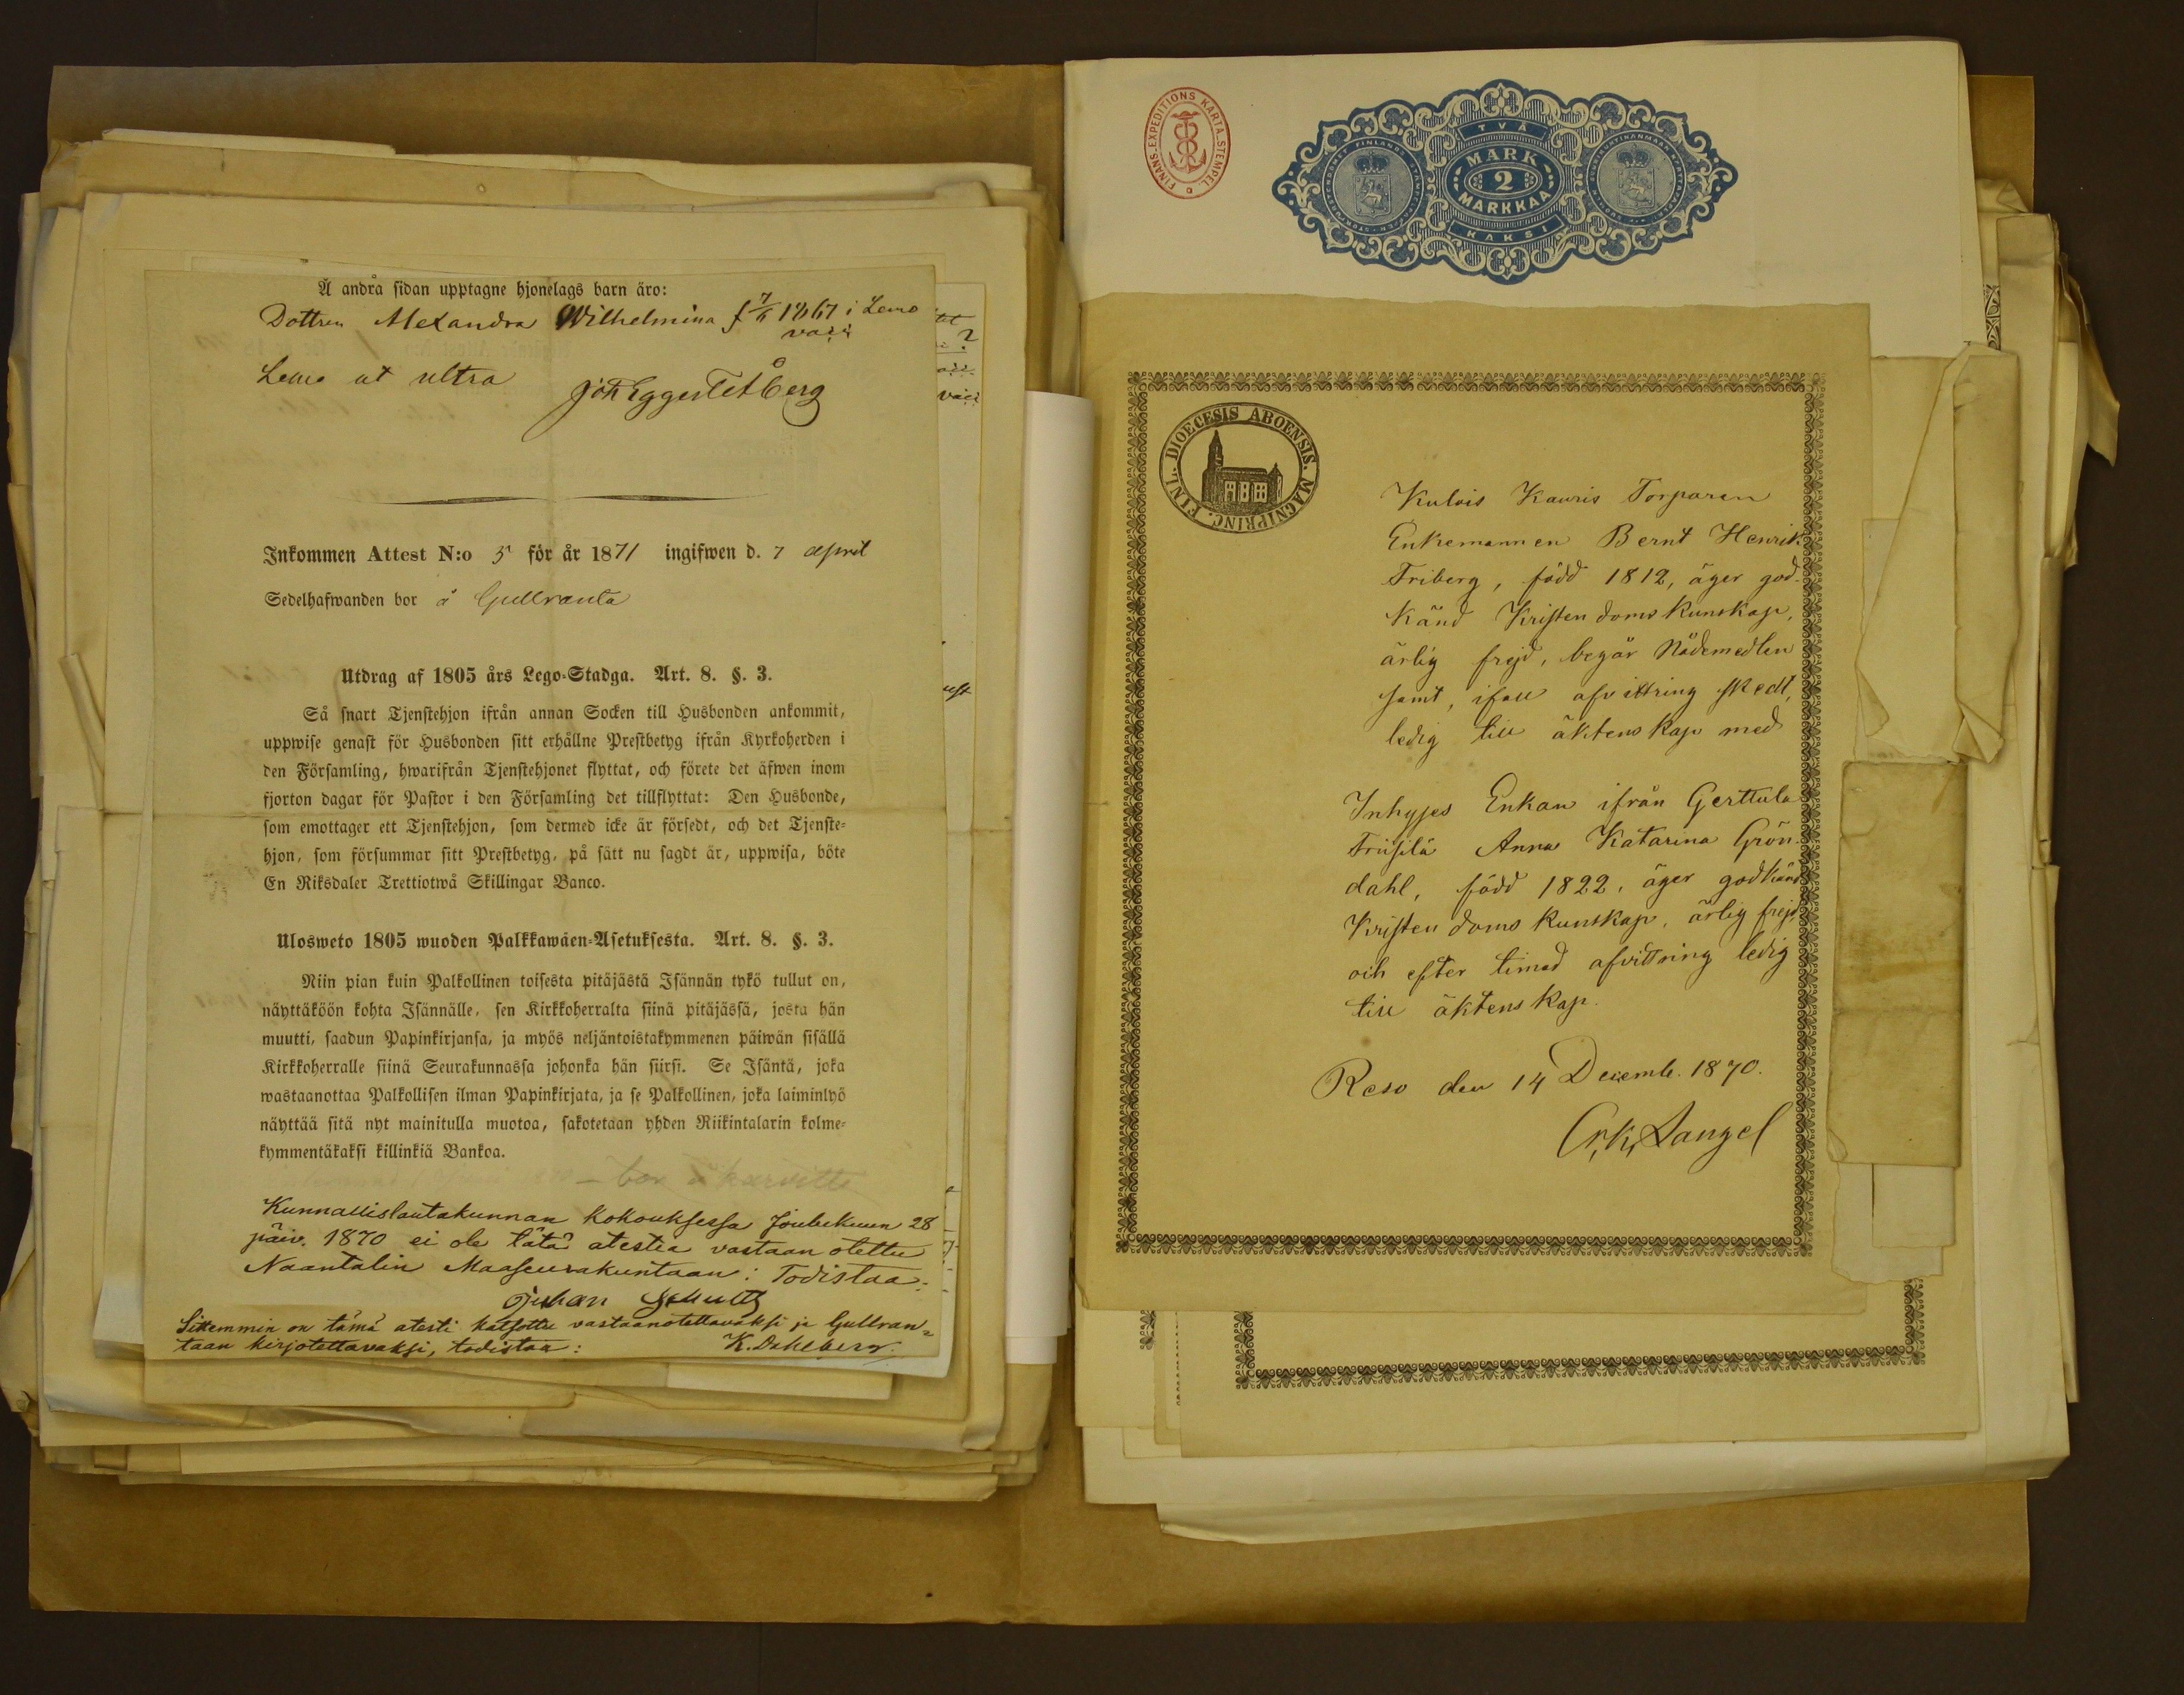 Å andra sidan upptagne hjonelags barn äro:
Dottren Alexandra Wilhelmina f 7/6 1867 i Lemo
vacc:
Lemo ut ultra
Joh Eggert Etberg
Inkommen Attest N:o 5 för år 1871 ingifwen d. 7 april
Sedelhafwanden bor å Gullranta
Utdrag af 1805 års Lego-Stadga. Art. 8. §. 3.
Så snart Tjenstehjon ifrån annan Socken till Husbonden ankommit,
uppwise genast för Husbonden sitt erhållne Prestbetyg ifrån Kyrkoherden i
den Församling, hwarifrån Tjenstehjonet flyttat, och förete det äfwen inom
fjorton dagar för Pastor i den Församling det tillflyttat: Den Husbonde,
som emottager ett Tjenstehjon, som dermed icke är försedt, och det Tjenste-
hjon, som försummar sitt Prestbetyg, på sätt nu sagdt är, uppwisa, böte
En Riksdaler Trettiotwå Skillingar Banco.
Ulosweto 1805 wuoden Palkkawäen-Asetuksesta. Art. 8. §. 3.
Niin pian kuin Palkollinen toisesta pitäjästä Isännän tykö tullut on,
näyttäköön kohta Isännälle, sen Kirkkoherralta siinä pitäjässä, josta hän
muutti, saadun Papinkirjansa, ja myös neljäntoistakymmenen päiwän sisällä
Kirkkoherralle siinä Seurakunnassa johonka hän siirsi. Se Isäntä, joka
wastaanottaa Palkollisen ilman Papinkirjata, ja se Palkollinen, joka laiminlyö
näyttää sitä nyt mainitulla muotoa, sakotetaan yhden Riikintalarin kolme-
kymmentäkaksi killinkiä Bankoa.
bor å
Kunnallislautakunnan kokouksessa Joulukuun 28
päiv. 1870 ei ole tätä atestia vastaan otettu
Naantalin Maaseurakuntaan: Todistaa:
Juhan Schultz
Sittemmin on tämä atesti katsottu vastaanotettavaksi ja Gullran=
taan kirjotettavaksi, todistaa: K. Dahlberg.
FINANS-EXPEDITIONS KARTA-STEMPEL
TVÅ
MARK
2
MARKKAA
KAKSI
DIOECESIS ABOENSIS. MAGNIPRINC. FINL.
Kulois Kauris Torparen
Enkemannen Bernt Henrik
Friberg, född 1812, äger god-
känd Kristendoms kunskap,
ärlig frejd, begår Nådemedlen
samt, ifall afvittring skedt,
ledig till äktenskap med
Inhyses Enkan ifrån Gerttula
Friisilä Anna Katarina Grön-
dahl, född 1822, äger godkänd
Kristendoms kunskap, ärlig frejd
och efter timad afvittring ledig
till äktenskap.
Reso den 14 Decemb. 1870.
Langel